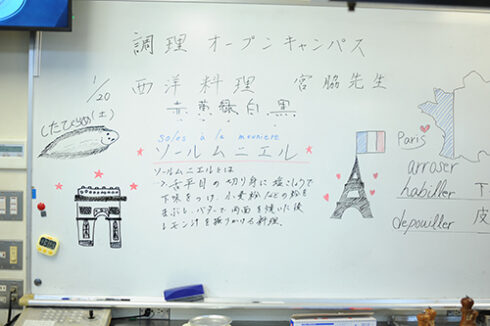 調理 オープンキャンパス
1/20 (土)
西洋料理 宮脇先生
赤 黄 緑 白 黒
したびらめ
soles à la meunière
ソールムニエル
ソールムニエルとは
→舌平目の切り身に塩こしょうで
下味をつけ、小麦粉などの粉を
まぶし、バターで両面を焼いた後
レモン汁を振りかけた料理。
Paris
arroser
habiller 下
depouiller 皮